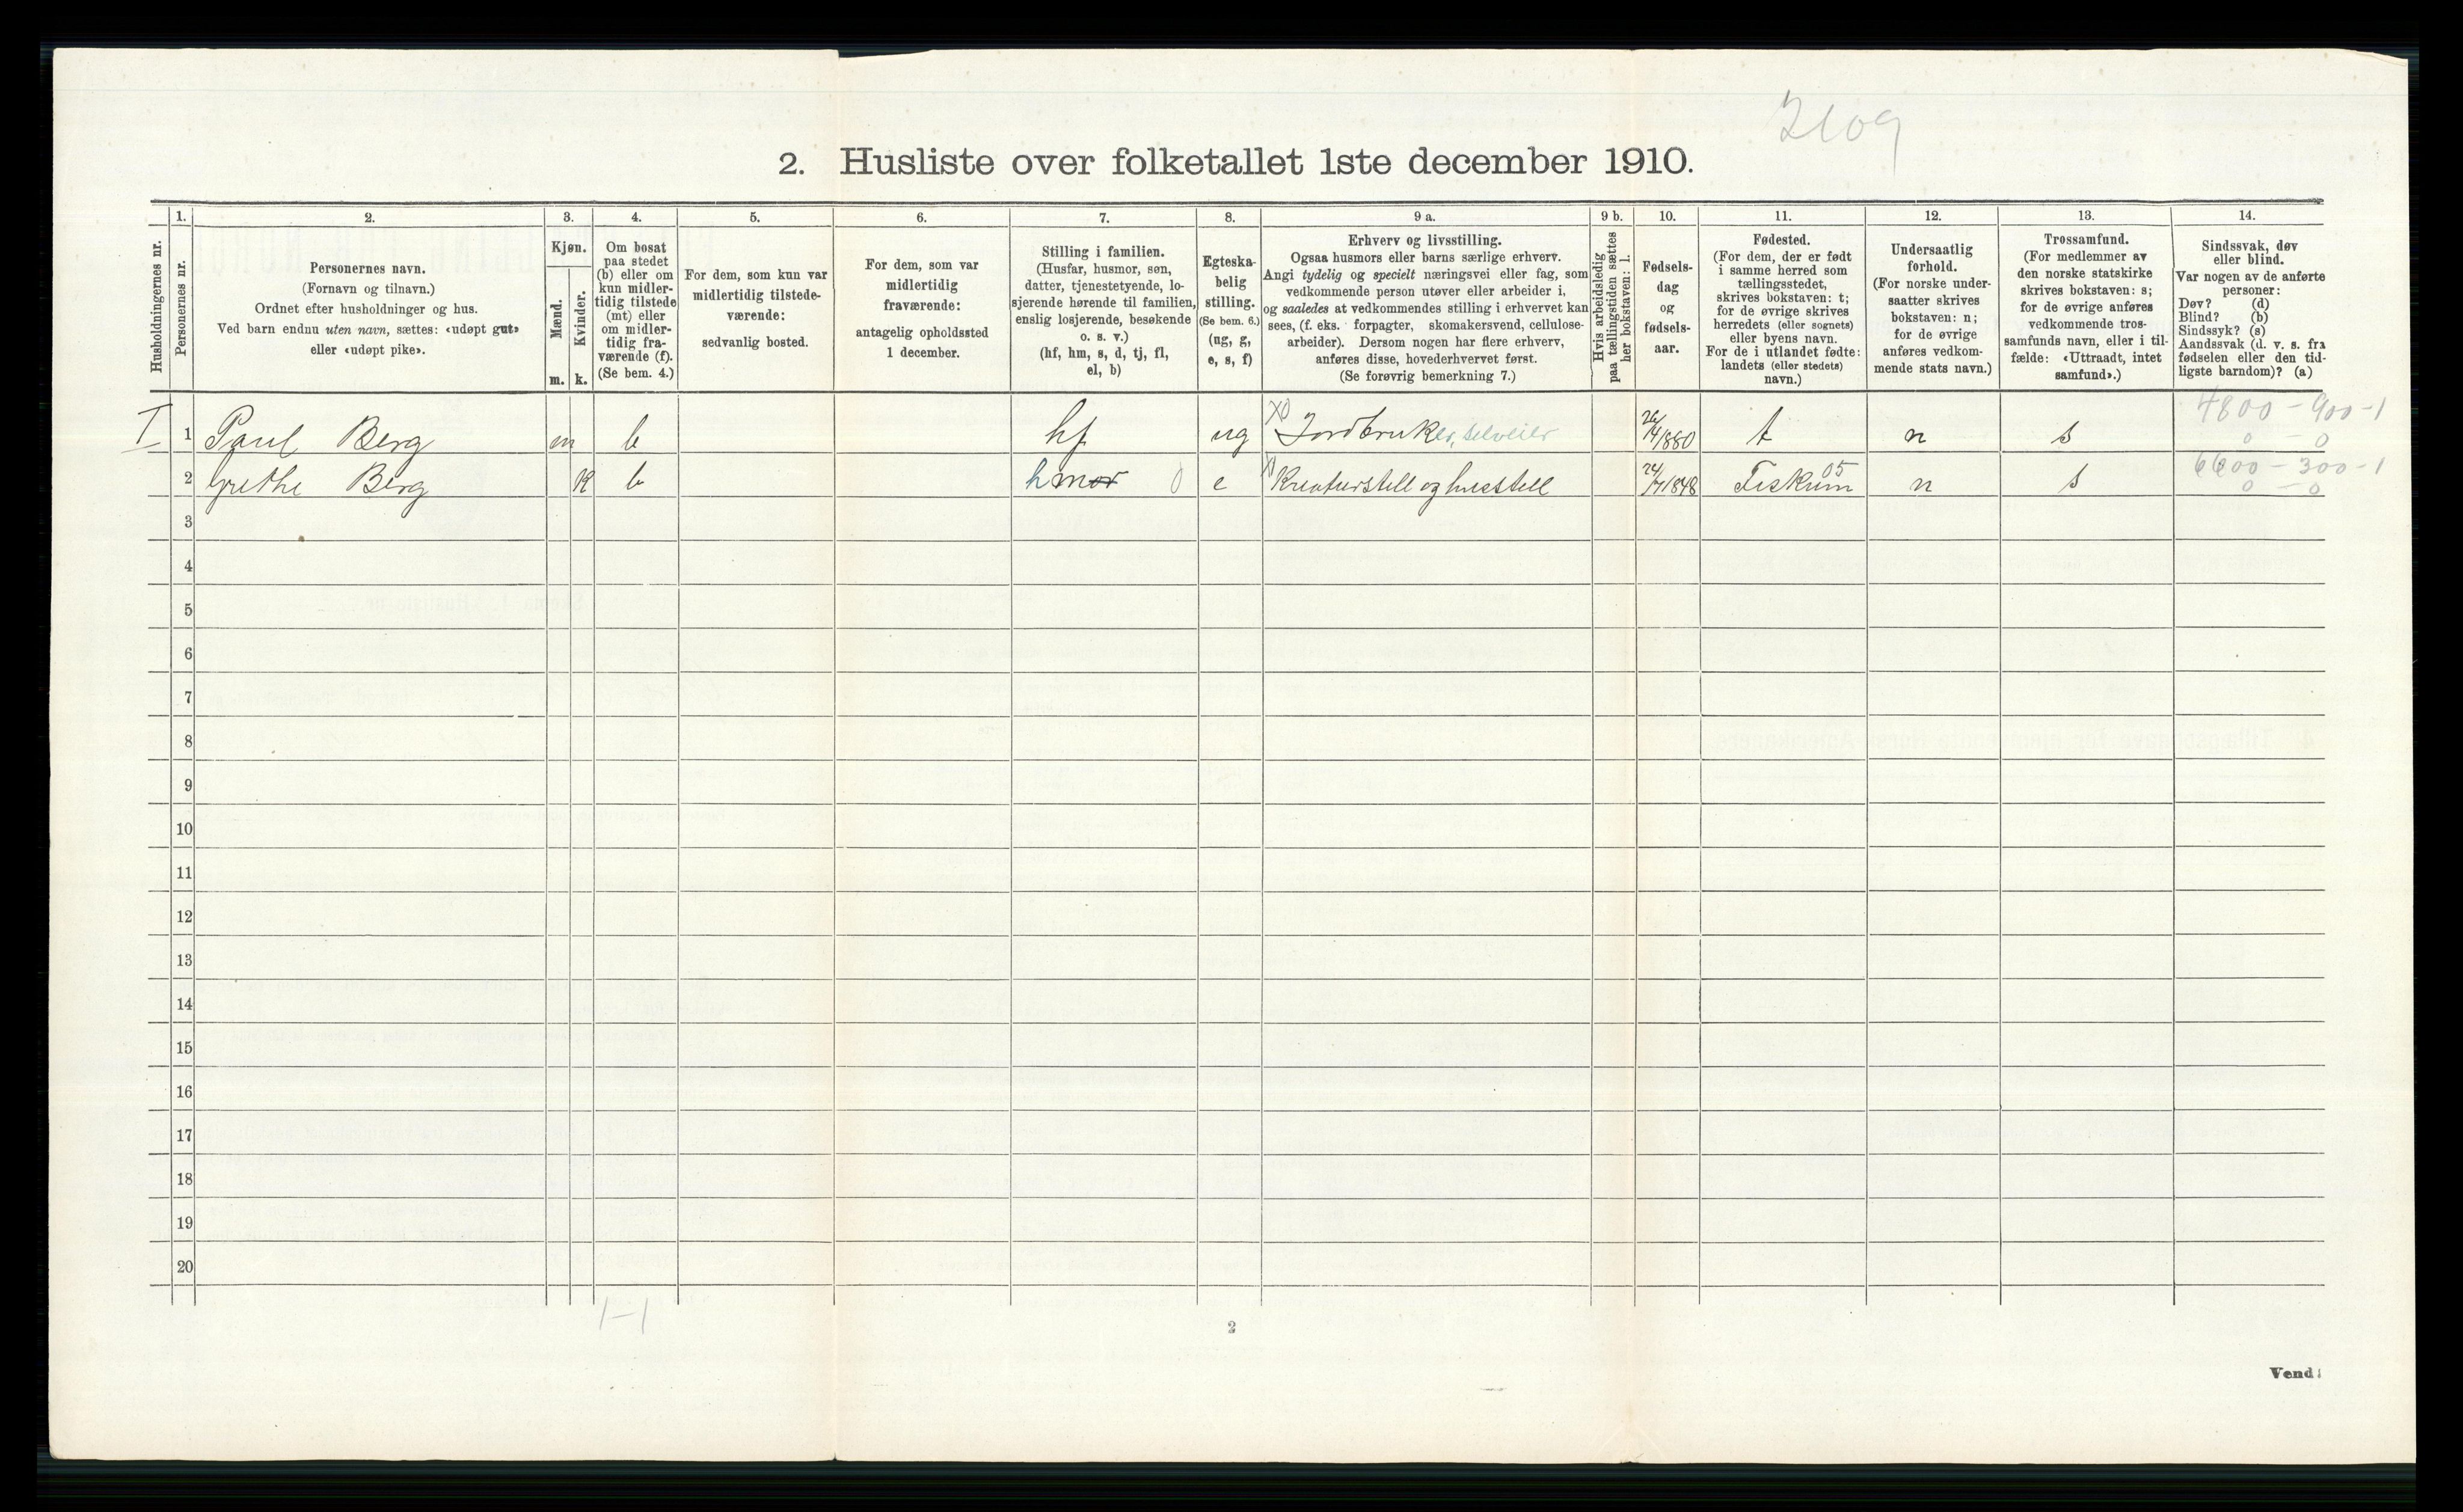 2109
2. Husliste over folketallet 1ste december 1910.
Husholdningernes nr.
1. Personernes nr.
2. Personernes navn.
(Fornavn og tilnavn.)
Ordnet efter husholdninger og hus.
Ved barn endnu uten navn, sættes: «udøpt gut»
eller «udøpt pike».
3. Kjøn.
Mænd. m.
Kvinder. k.
4. Om bosat
paa stedet
(b) eller om
kun midler-
tidig tilstede
(mt) eller
om midler-
tidig fra-
værende (f).
(Se bem. 4.)
5. For dem, som kun var
midlertidig tilstede-
værende:
sedvanlig bosted.
6. For dem, som var
midlertidig
fraværende:
antagelig opholdssted
1 december.
7. Stilling i familien.
(Husfar, husmor, søn,
datter, tjenestetyende, lo-
sjerende hørende til familien,
enslig losjerende, besøkende
o. s. v.)
(hf, hm, s, d, tj, fl,
el, b)
8. Egteska-
belig
stilling.
(Se bem. 6.)
(ug, g,
e, s, f)
9 a. Erhverv og livsstilling.
Ogsaa husmors eller barns særlige erhverv.
Angi tydelig og specielt næringsvei eller fag, som
vedkommende person utøver eller arbeider i,
og saaledes at vedkommendes stilling i erhvervet kan
sees, (f. eks. forpagter, skomakersvend, cellulose-
arbeider). Dersom nogen har flere erhverv,
anføres disse, hovederhvervet først.
(Se forøvrig bemerkning 7.)
9 b. Hvis arbeidsledig
paa tællingstiden sættes
her bokstaven: l.
10. Fødsels-
dag
og
fødsels-
aar.
11. Fødested.
(For dem, der er født
i samme herred som
tællingsstedet,
skrives bokstaven: t;
for de øvrige skrives
herredets (eller sognets)
eller byens navn.
For de i utlandet fødte:
landets (eller stedets)
navn.)
12. Undersaatlig
forhold.
(For norske under-
saatter skrives
bokstaven: n;
for de øvrige
anføres vedkom-
mende stats navn.)
13. Trossamfund.
(For medlemmer av
den norske statskirke
skrives bokstaven: s;
for de øvrige anføres
vedkommende tros-
samfunds navn, eller i til-
fælde: «Uttraadt, intet
samfund».)
14. Sindssvak, døv
eller blind.
Var nogen av de anførte
personer:
Døv? (d)
Blind? (b)
Sindssyk? (s)
Aandssvak (d. v. s. fra
fødselen eller den tid-
ligste barndom)? (a)
4800 - 900 - 1
I 1 Paul Berg m b hf ug X0 Jordbruker, selveier 1880 t n s 0 - 0
6600 - 300 - 1
2 Grethe Berg K b hmor 0 e Kreaturstell og husstell 24/7 1848 Fiskum 05 n s 0 - 0
3
4
5
6
7
8
9
10
11
12
13
14
15
16
17
18
19
20
1-1
2
Vend!